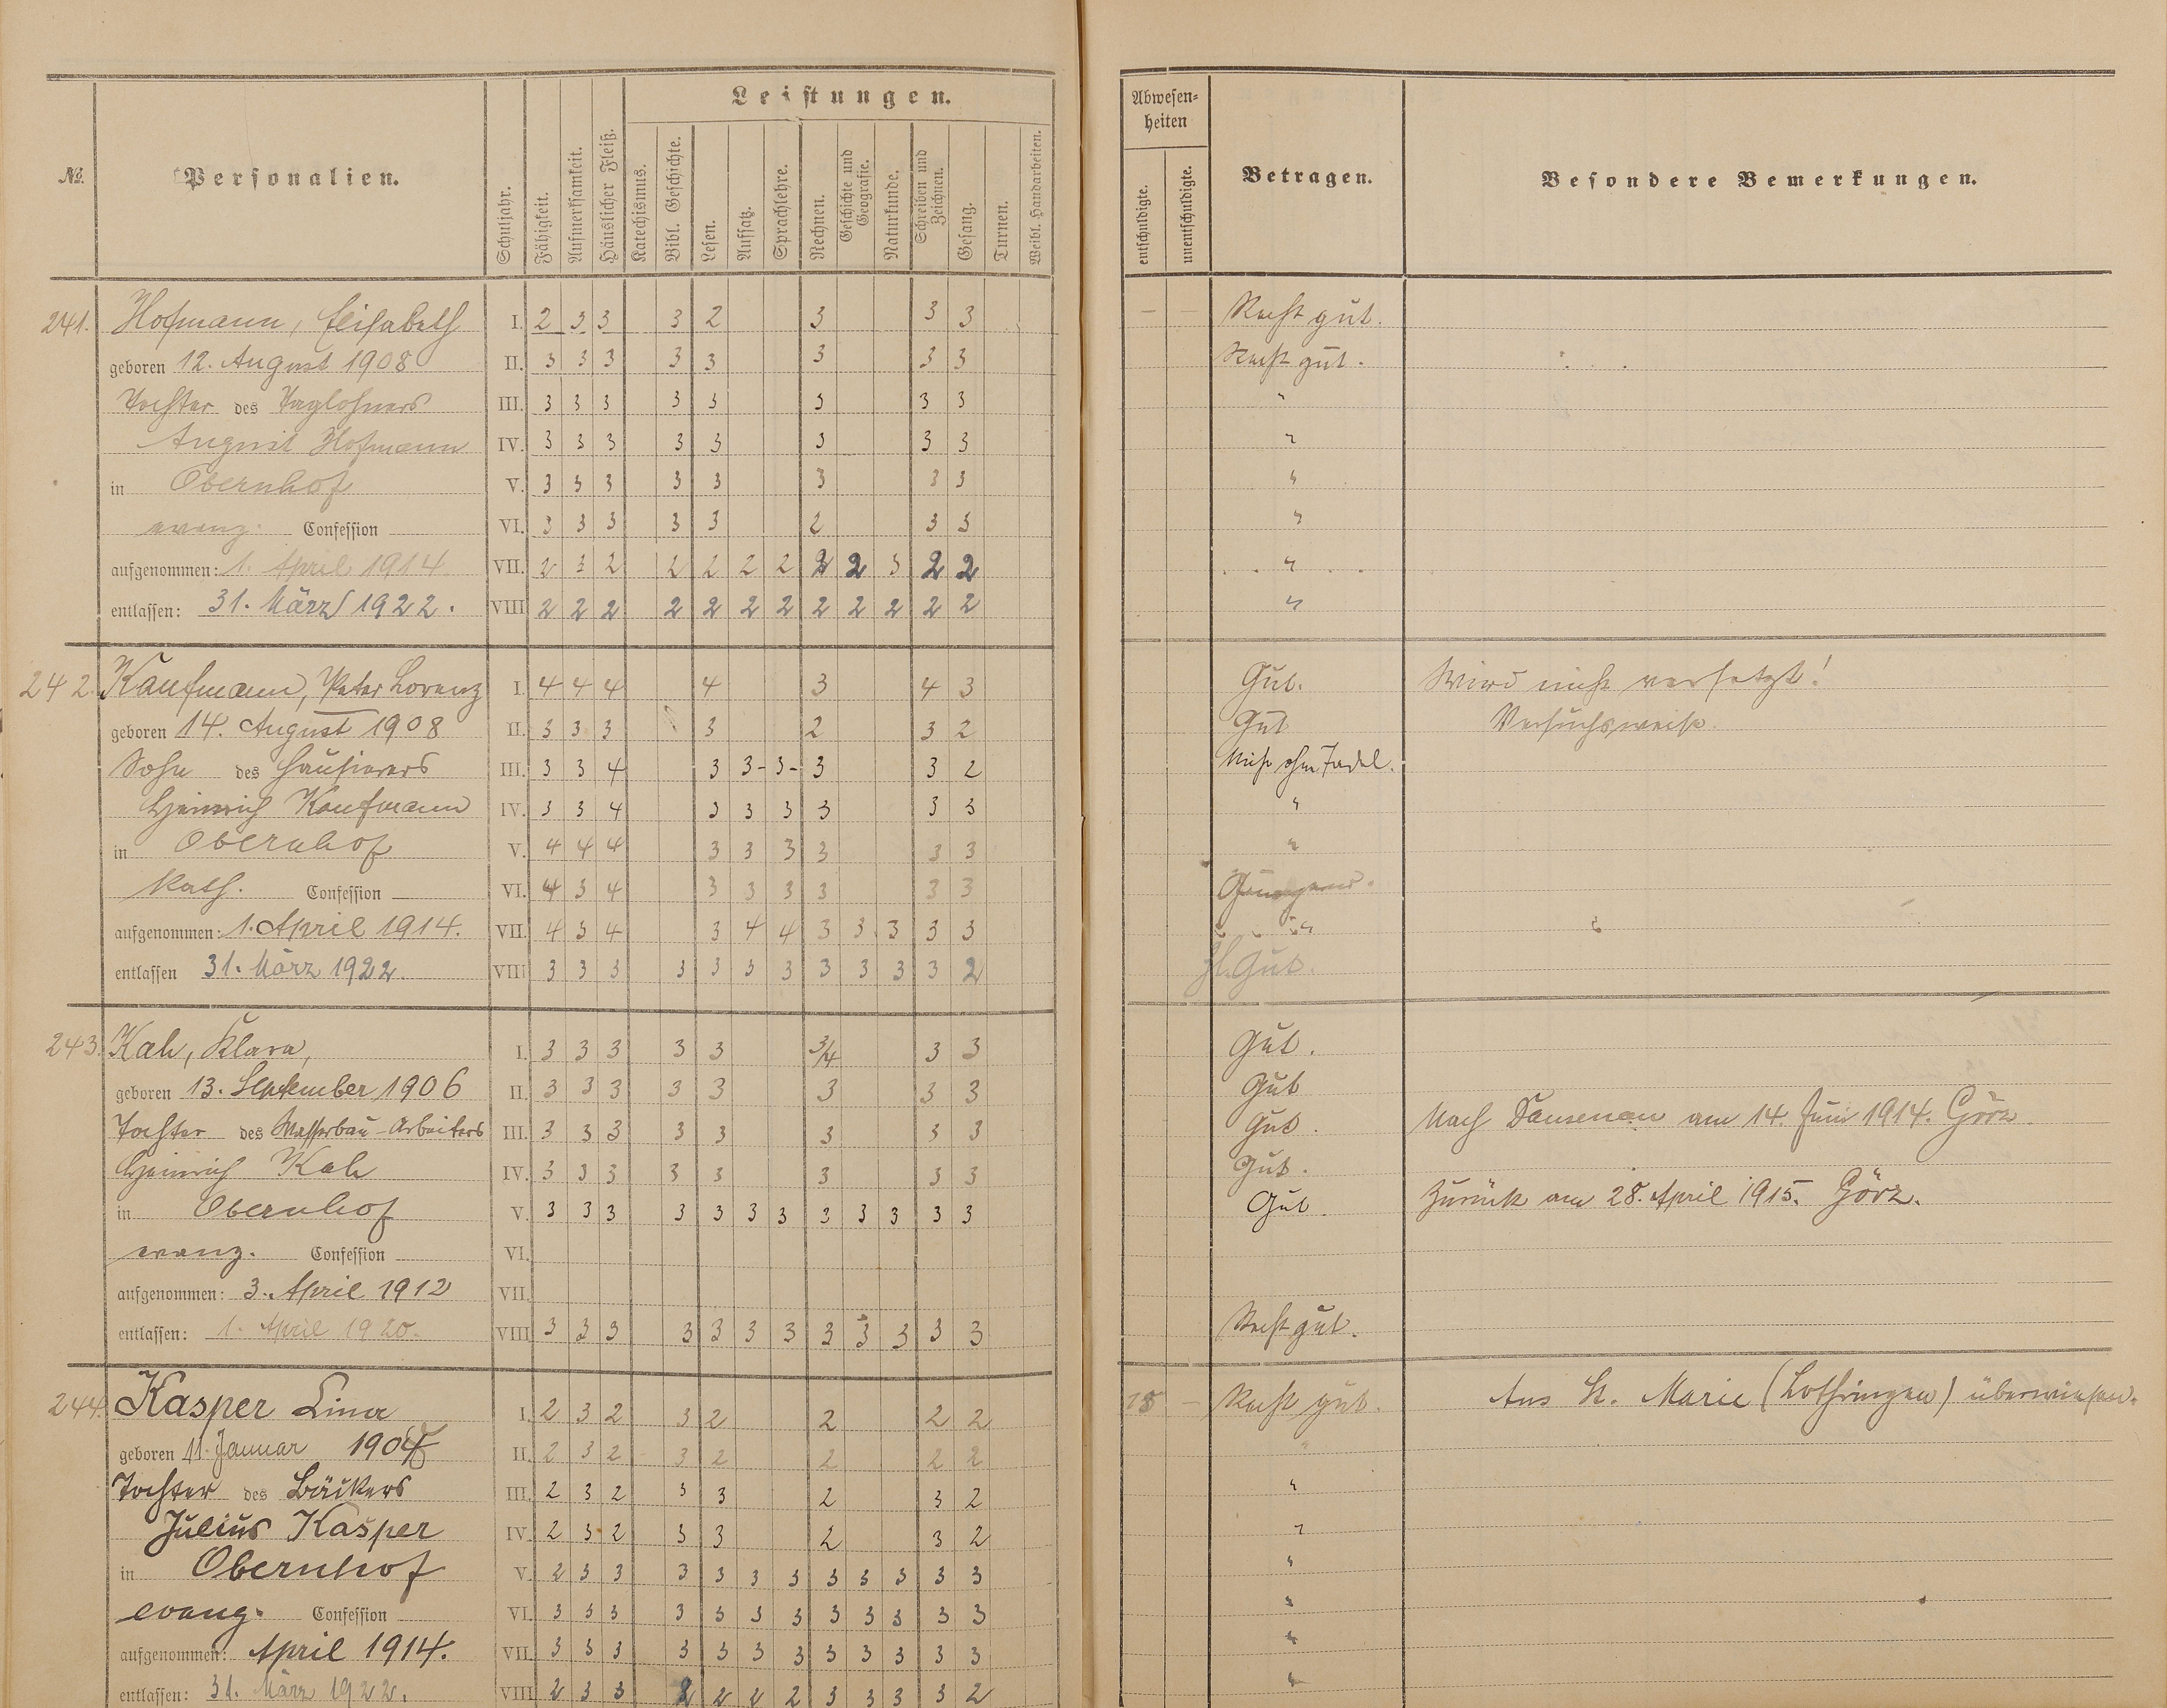 Leistungen.
Abwesenheiten
№
Personalien.
Schuljahr.
Fähigkeit.
Aufmerksamkeit.
Häuslicher Fleiß.
Katechismus.
Bibl. Geschichte.
Lesen.
Aufsatz.
Sprachlehre.
Rechnen.
Geschichte und Geografie.
Naturkunde.
Schreiben und Zeichnen.
Gesang.
Turnen.
Weibl. Handarbeiten.
entschuldigte.
unentschuldigte.
Betragen.
Besondere Bemerkungen.
241. Hofmann, Elisabeth I. 2 3 3 3 2 3 3 3 — — Recht gut.
geboren 12. August 1908 II. 3 3 3 3 3 3 3 3 Recht gut.
Tochter des Taglöhners III. 3 3 3 3 3 3 3 3 "
August Hofmann IV. 3 3 3 3 3 3 3 3 "
in Obernhof V. 3 3 3 3 3 3 3 3 "
evang. Confession VI. 3 3 3 3 3 2 3 3 "
aufgenommen: 1. April 1914. VII. 2 2 2 2 2 2 2 2 3 2 2 "
entlassen: 31. März 1922. VIII 2 2 2 2 2 2 2 2 2 2 2 2 "
242. Kaufmann, Peter Lorenz I. 4 4 4 4 3 4 3 Gut. Wird nicht versetzt!
geboren 14. August 1908 II. 3 3 3 3 2 3 2 Gut Versuchsweise.
Sohn des Hausierers III. 3 3 4 3 3- 3- 3 3 2 Nicht ohne Tadel.
Heinrich Kaufmann IV. 3 3 4 3 3 3 3 3 3 "
in Obernhof V. 4 4 4 3 3 3 3 3 3 "
kath. Confession VI. 4 3 4 3 3 3 3 3 3
aufgenommen: 1. April 1914. VII. 4 3 4 3 4 4 3 3 3 3 3 "
entlassen 31. März 1922. VIII 3 3 3 3 3 3 3 3 3 3 3 2 Zl. Gut.
243. Kah, Klara, I. 3 3 3 3 3 3/4 3 3 Gut.
geboren 13. September 1906 II. 3 3 3 3 3 3 3 3 Gut
Tochter des Wasserbau-Arbeiters III. 3 3 3 3 3 3 3 3 Gut. Nach Dausenau am 14. Juni 1914. Görz.
Heinrich Kah IV. 3 3 3 3 3 3 3 3 Gut.
in Obernhof V. 3 3 3 3 3 3 3 3 3 3 3 3 Gut. Zurück am 28. April 1915. Görz.
evang. Confession VI.
aufgenommen: 3. April 1912 VII.
entlassen: 1. April 1920. VIII 3 3 3 3 3 3 3 3 3 3 3 3 Recht gut.
244. Kasper Lina I. 2 3 2 3 2 2 2 2 18 — Recht gut. Aus St. Marie (Lothringen) überwiesen.
geboren 11. Januar II. 2 3 2 3 2 2 2 2 "
Tochter des Bäckers III. 2 3 2 3 3 2 3 2 "
Julius Kasper IV. 2 3 2 3 3 2 3 2 "
in Obernhof V. 2 3 3 3 3 3 3 3 3 3 3 3 "
evang. Confession VI. 3 3 3 3 3 3 3 3 3 3 3 3 "
aufgenommen: April 1914. VII. 3 3 3 3 3 3 3 3 3 3 3 3 "
entlassen: 31. März 1922. VIII 2 3 3 2 2 2 2 3 3 3 3 2 "